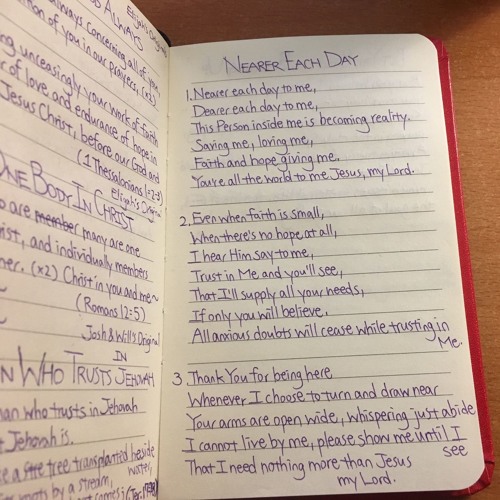 ALWAYS
Elijah's Original
always concerning all of you,
of you in our prayers, (x2)
unceasingly your work of faith
of love and endurance of hope in
Jesus Christ, before our God and
(1 Thessalonians 1:2-3)
Elijah's Original
ONE BODY IN CHRIST
are member many are one
and individually members
(x2) Christ in you and me~
(Romans 12:5)
Josh & Will's Original
IN
WHO TRUSTS JEHOVAH
who trusts in Jehovah
Jehovah is.
a tree transplanted beside
water,
by a stream,
NEARER EACH DAY
1. Nearer each day to me,
Dearer each day to me,
This Person inside me is becoming reality.
Saving me, loving me,
Faith and hope giving me.
You're all the world to me Jesus, my Lord.
2. Even when faith is small,
When there's no hope at all,
I hear Him say to me,
Trust in Me and you'll see,
That I'll supply all your needs,
If only you will believe.
All anxious doubts will cease while trusting in
Me.
3. Thank You for being here
Whenever I choose to turn and draw near
Your arms are open wide, whispering just abide
I cannot live by me, please show me until I
see
That I need nothing more than Jesus
my Lord.